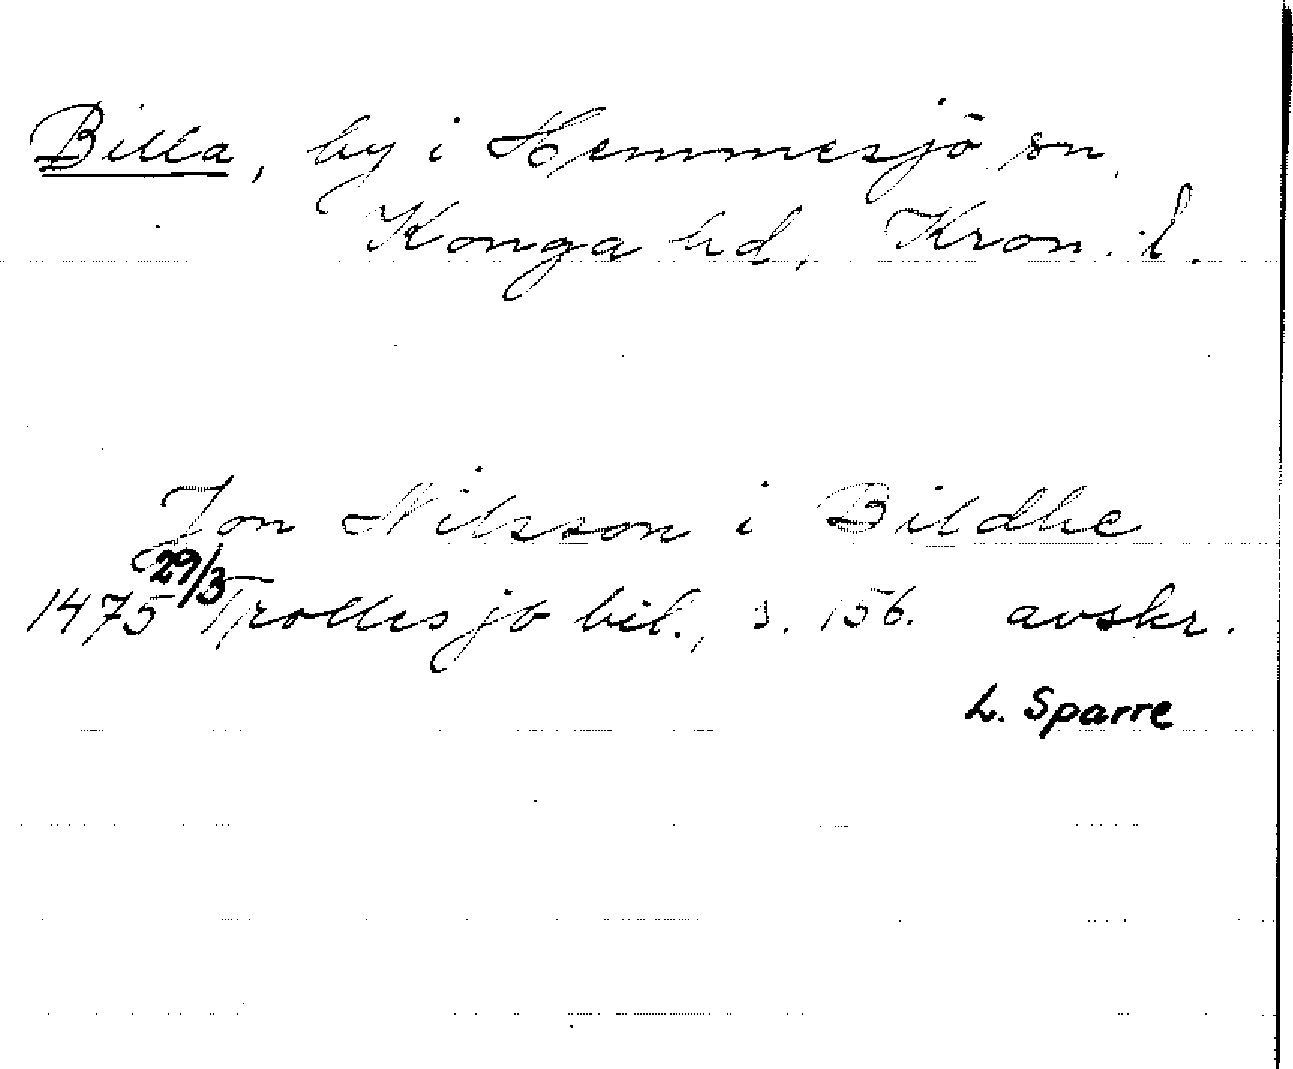 Billa, by i Hemmesjö sn,
Konga hd, Kron. l.
Jon Nilsson i Bildhe
1475 29/3 Trolles jb bil., s. 156. avskr.
L. Sparre